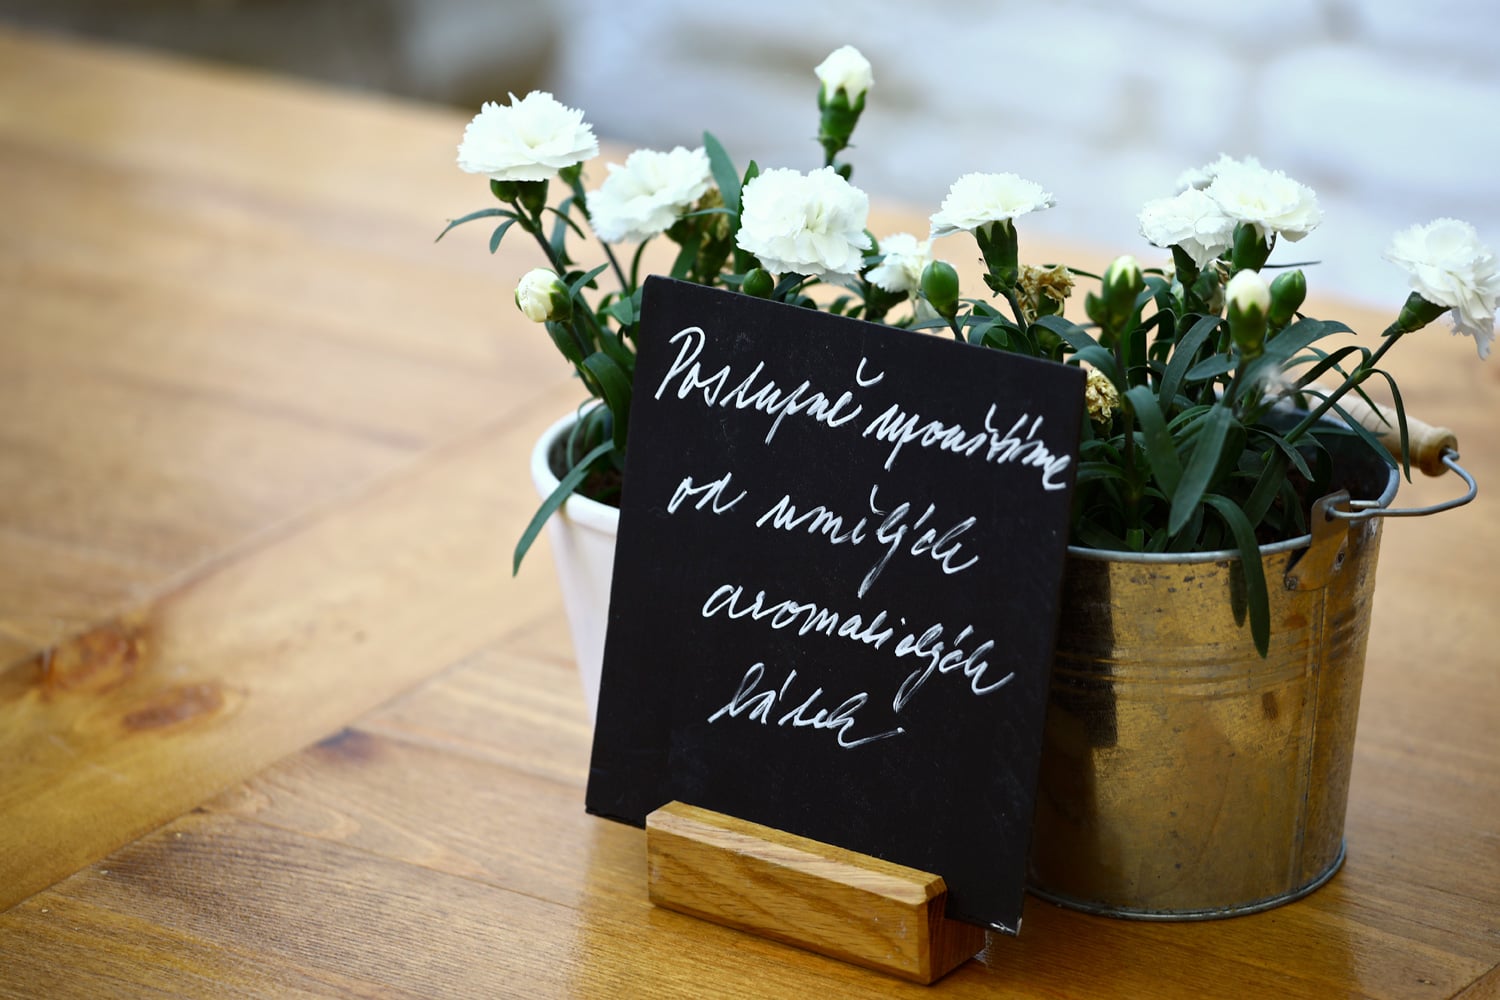 Postupně upouštíme
od umělých
aromatických
látek